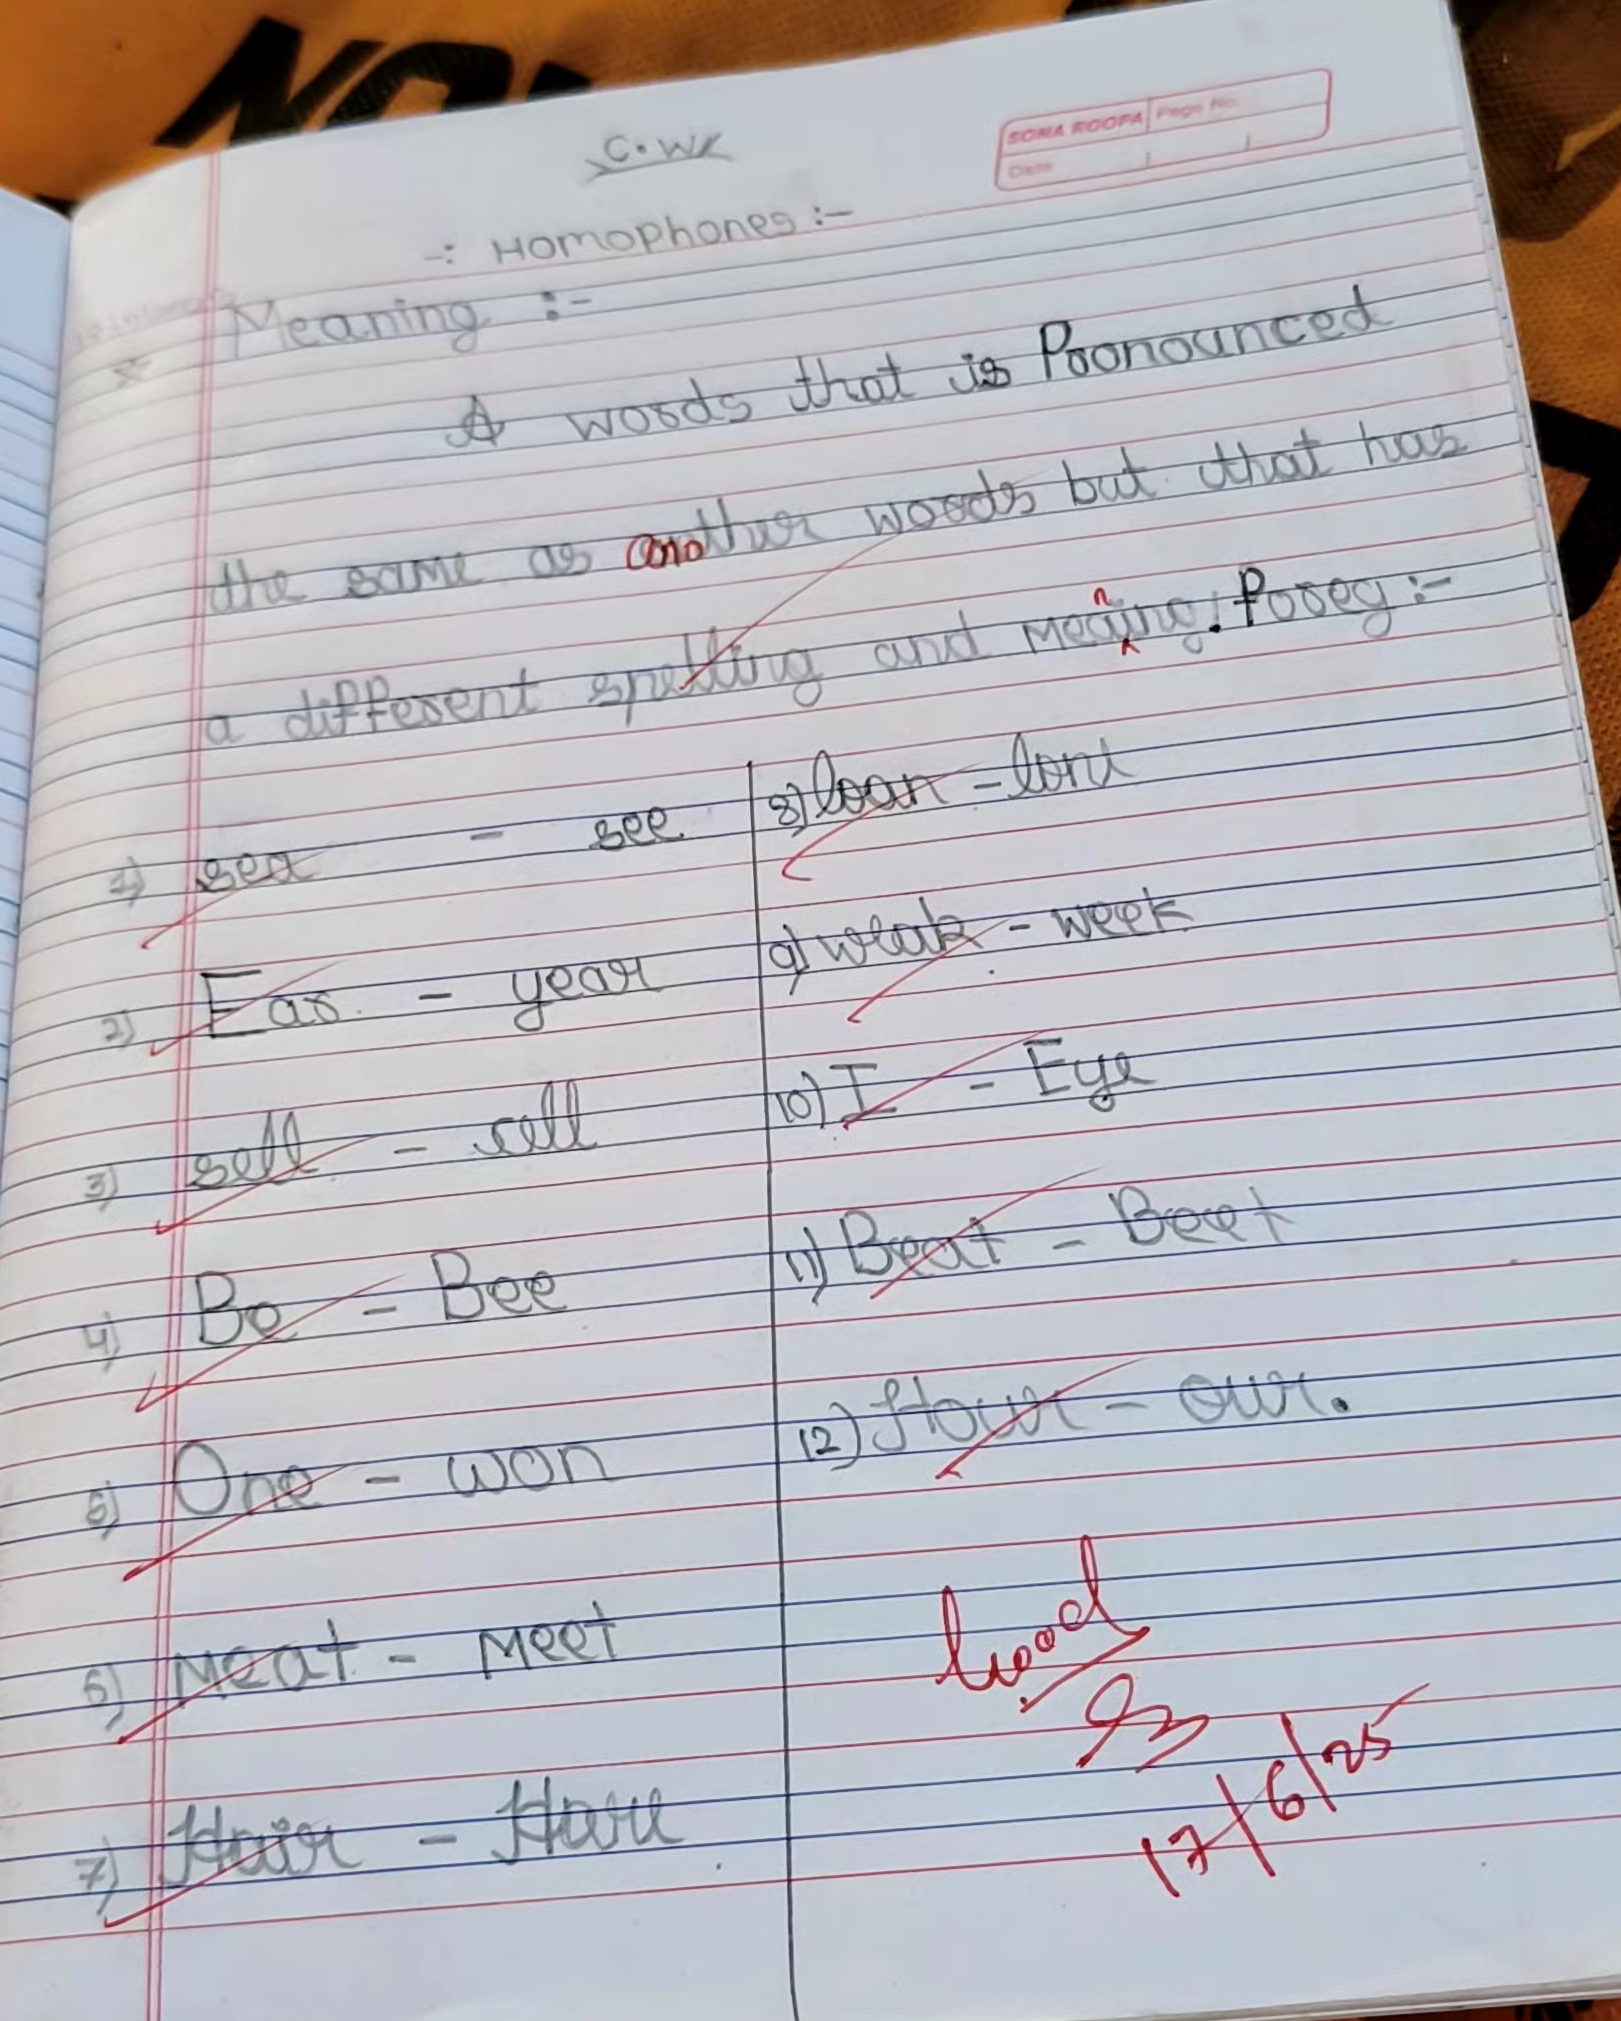 C.W
SOMA ROOPA Page No.
Date
-: Homophones :-
Meaning :-
A words that is Pronounced
the same as another words but that has
a different spelling and meaning. Foreg :-
1) sea - see
2) Ear - year
3) sell - cell
4) Be - Bee
5) One - won
6) Meat - Meet
7) Hair - Hare
8) loan - lone
9) weak - week
10) I - Eye
11) Beat - Beet
12) Hour - our.
Good
17/6/25